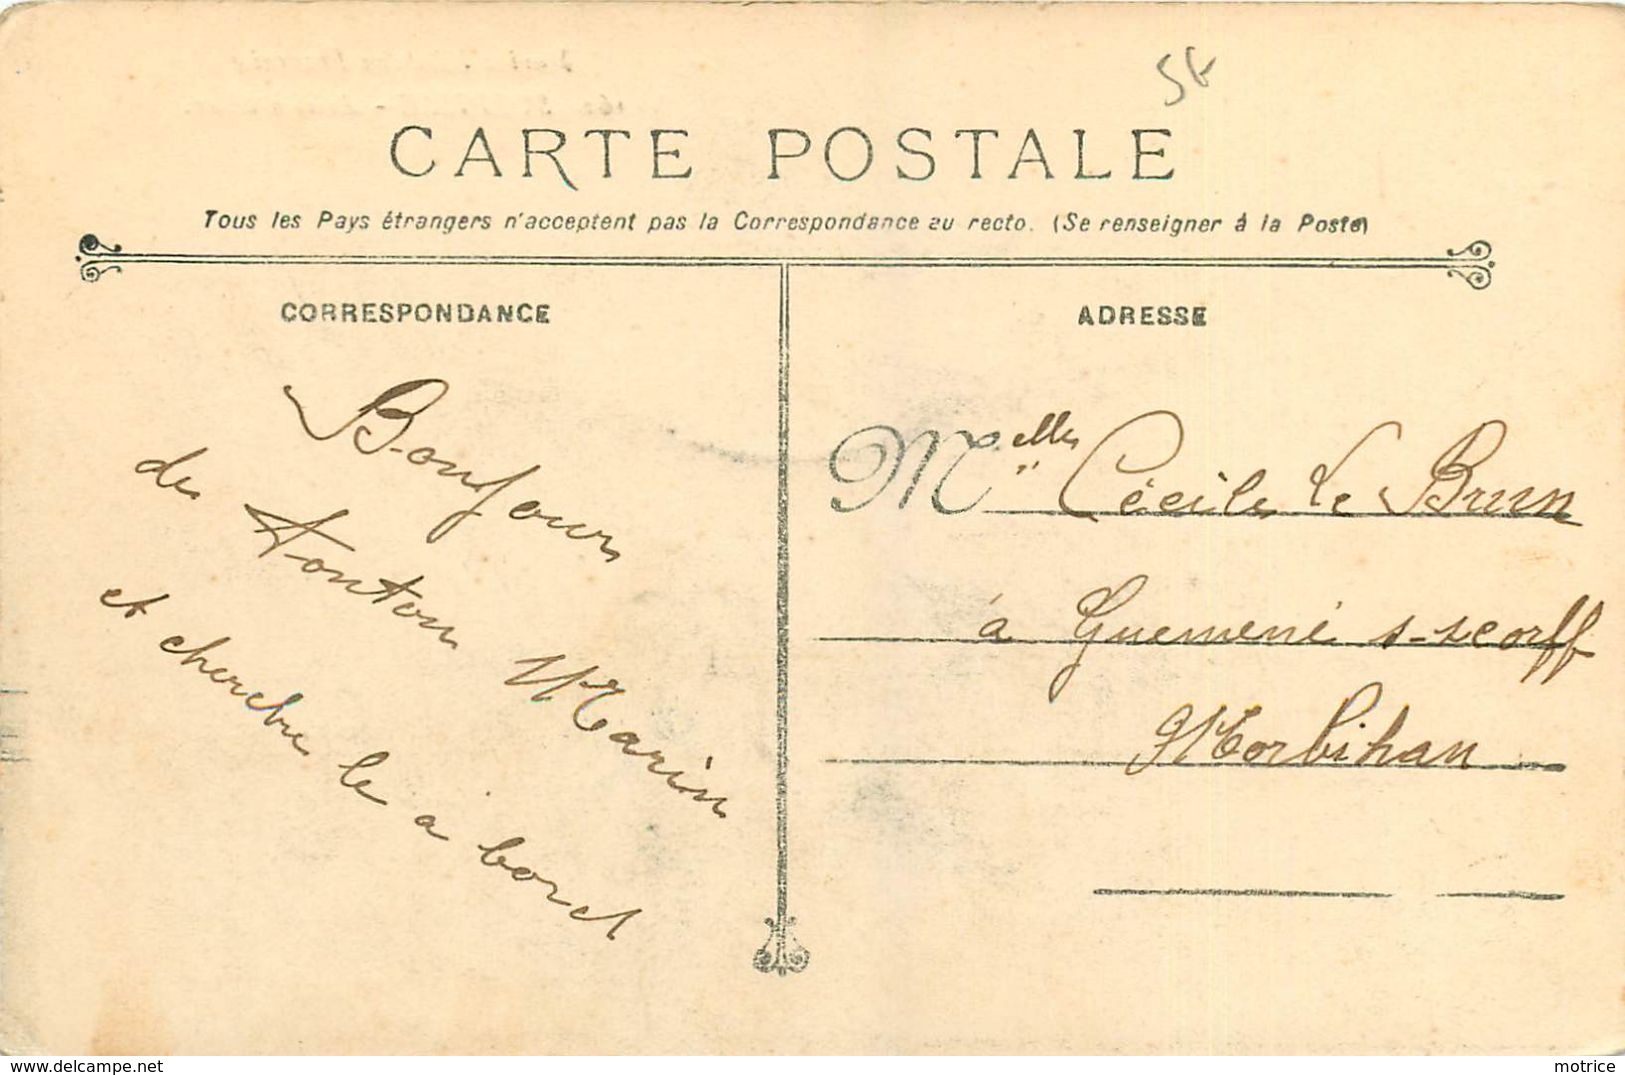 5€
CARTE POSTALE
Tous les Pays étrangers n'acceptent pas la Correspondance au recto. (Se renseigner à la Poste)
CORRESPONDANCE
Bonjour
de Tonton Marin
et cherche le à bord
ADRESSE
Melle Cécile Le Brun
à Guemené s-scorff
Morbihan
www.delcampe.net
motrice